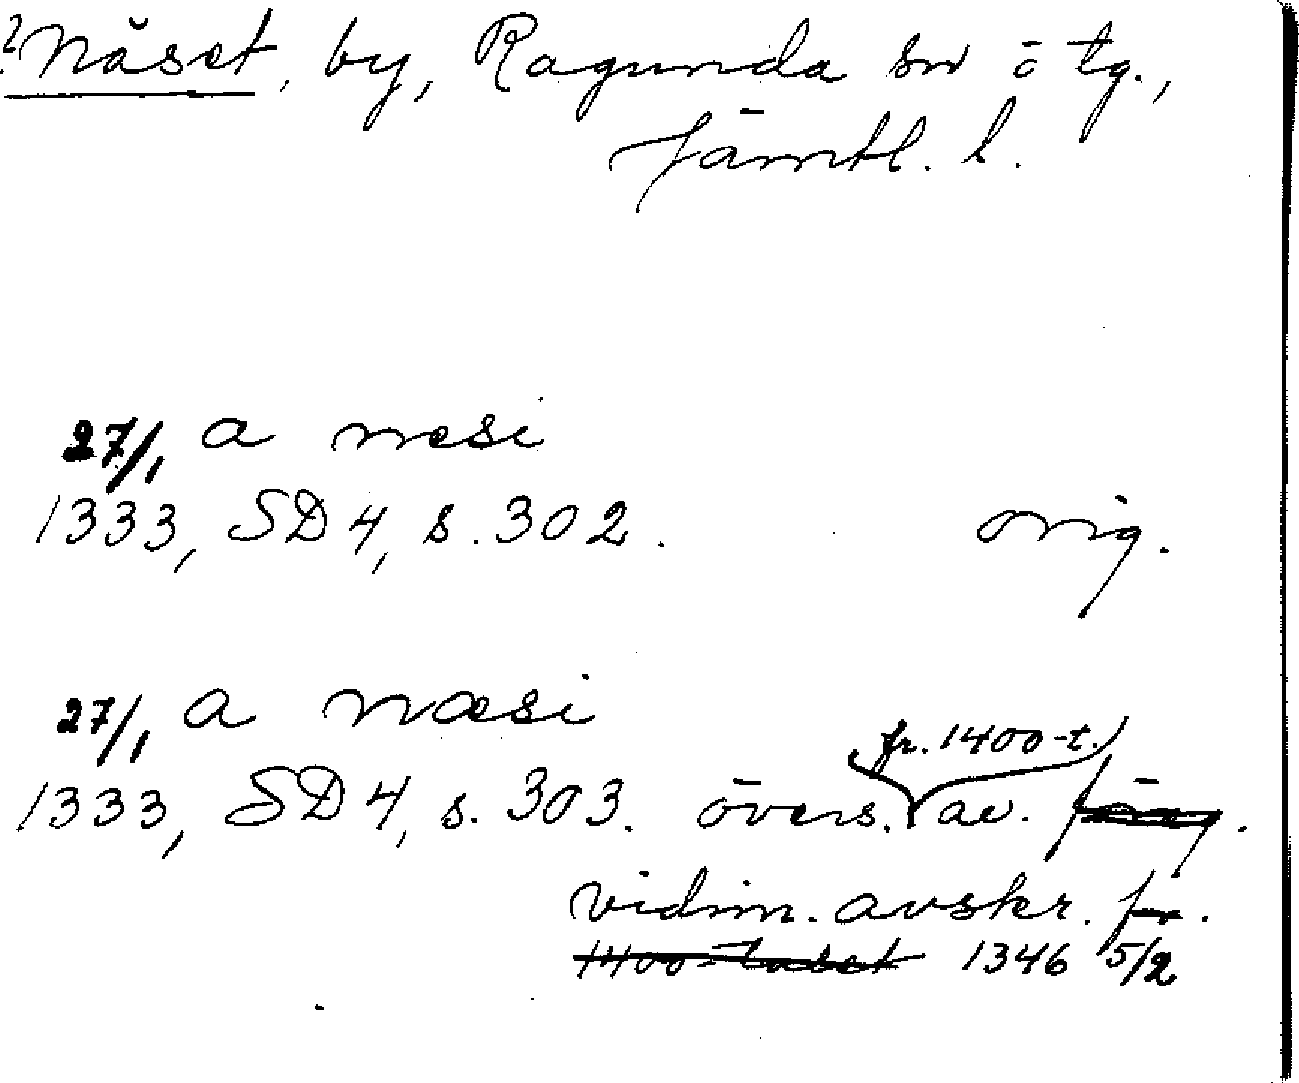 ? Näset, by, Ragunda sn o tg.,
Jämtl. l.
27/1 a næsi
1333, SD 4, s. 302. orig.
27/1 a næsi
fr. 1400-t.
1333, SD 4, s. 303. övers. av.
vidim. avskr. fr.
1400-talet 1346 5/2